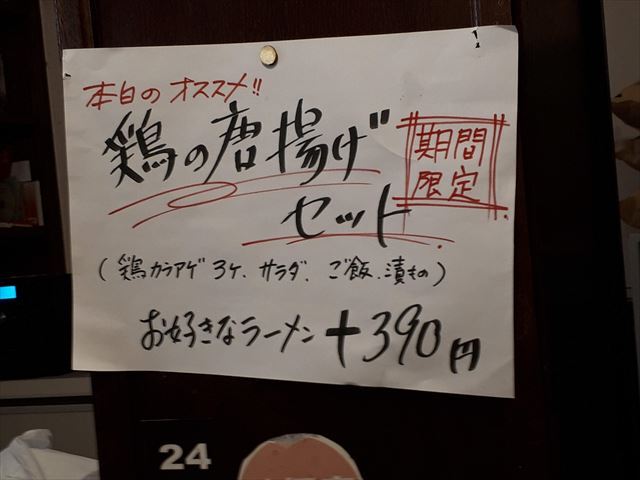 本日のオススメ!!
鶏の唐揚げ
セット
期間
限定
(鶏カラアゲ3ケ、サラダ、ご飯、漬もの)
お好きなラーメン+390円
24